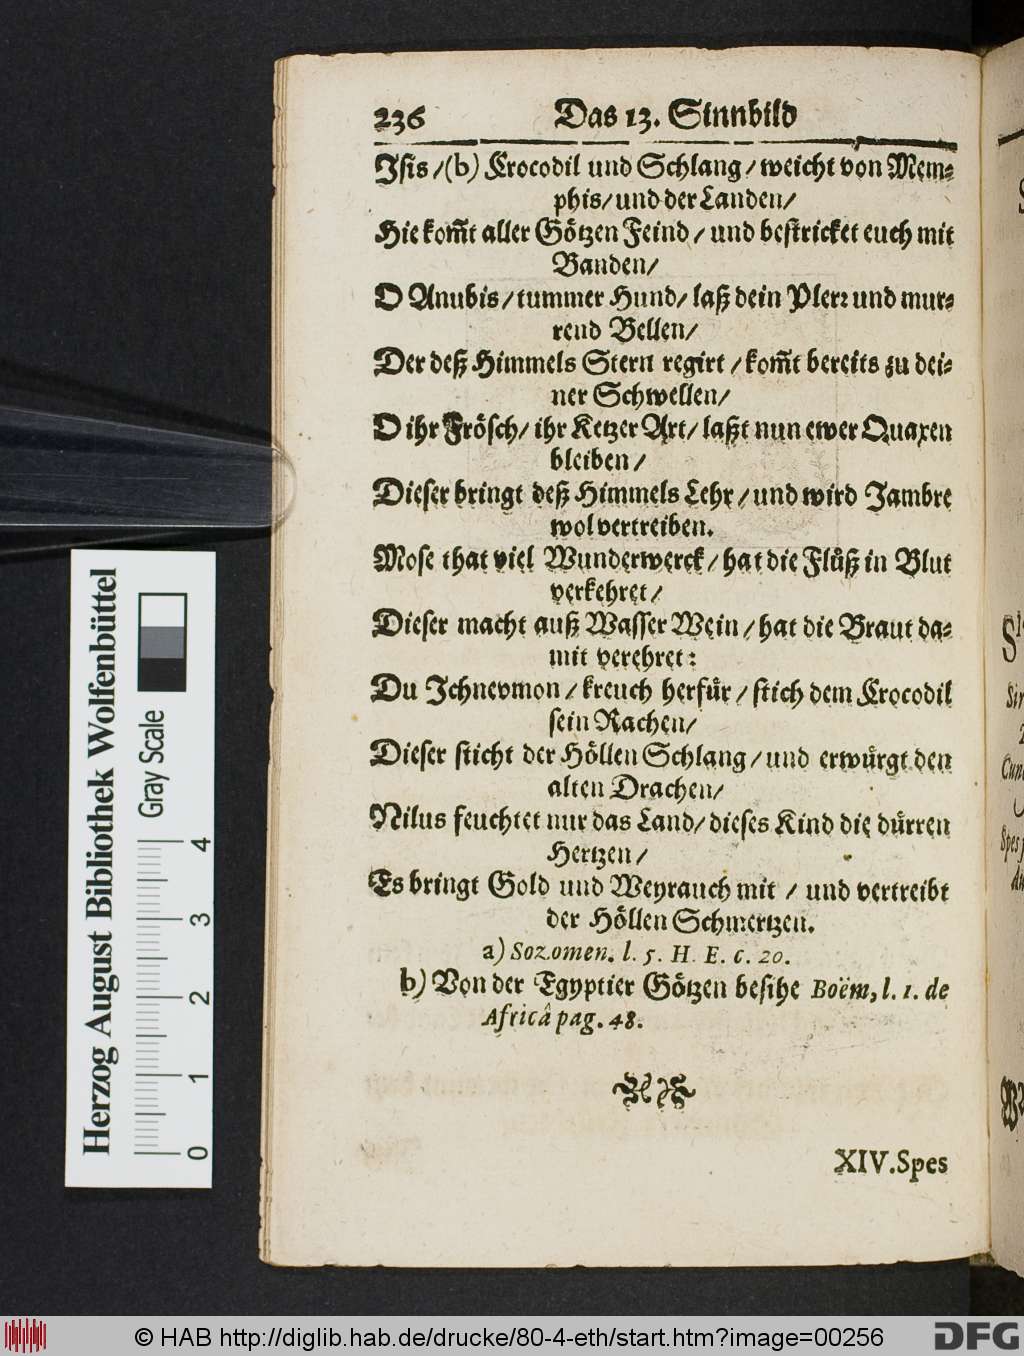 236 Das 13. Sinnbild
Isis/(b) Crocodil und Schlang/weicht von Mem-
phis/und der Landen/
Hie kom̃t aller Götzen Feind/und bestricket euch mit
Banden/
O Anubis/tummer Hund/laß dein Plerr und mur-
rend Bellen/
Der deß Himmels Stern regirt/kom̃t bereits zu dei-
ner Schwellen/
O ihr Frösch/ihr Ketzer Art/laßt nun ewer Quaxen
bleiben/
Dieser bringt deß Himmels Lehr/und wird Jambre
wol vertreiben.
Mose that viel Wunderwerck/hat die Flůß in Blut
verkehret/
Dieser macht auß Wasser Wein/hat die Braut da-
mit verehret:
Du Ichnevmon/kreuch herfür/stich dem Crocodil
sein Rachen/
Dieser sticht der Höllen Schlang/und erwürgt den
alten Drachen/
Nilus feuchtet nur das Land/dieses Kind die dürren
Hertzen/
Es bringt Gold und Weyrauch mit/und vertreibt
der Höllen Schmertzen.
a) Sozomen. l. 5. H. E. c. 20.
b) Von der Egyptier Götzen besihe Boëm, l. 1. de
Africâ pag. 48.
XIV. Spes
Herzog August Bibliothek Wolfenbüttel
Gray Scale
0 1 2 3 4
© HAB http://diglib.hab.de/drucke/80-4-eth/start.htm?image=00256
DFG